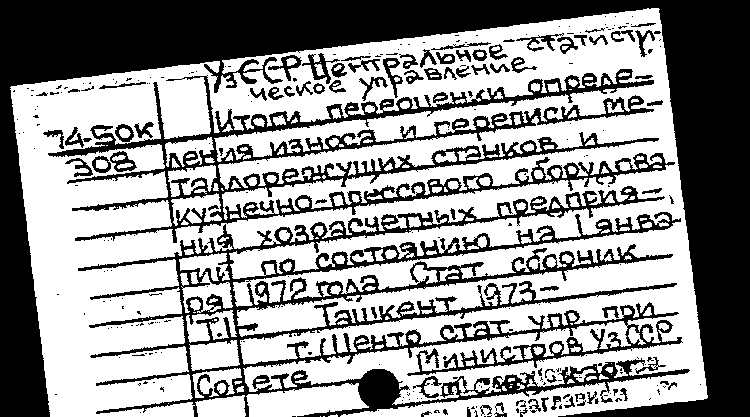 УзССР. Центральное статисти-
ческое управление.
Итоги переоценки, опреде-
74-50К
ления износа и переписи ме-
308
таллорежущих станков и
кузнечно-прессового оборудова-
ния хозрасчетных предприя-
тий по состоянию на 1 янва-
ря 1972 года. Стат. сборник.
Т.1- Ташкент, 1973-
т. (Центр. стат. упр. при
Совете Министров УзССР.
См. след. карт.
под заглавием